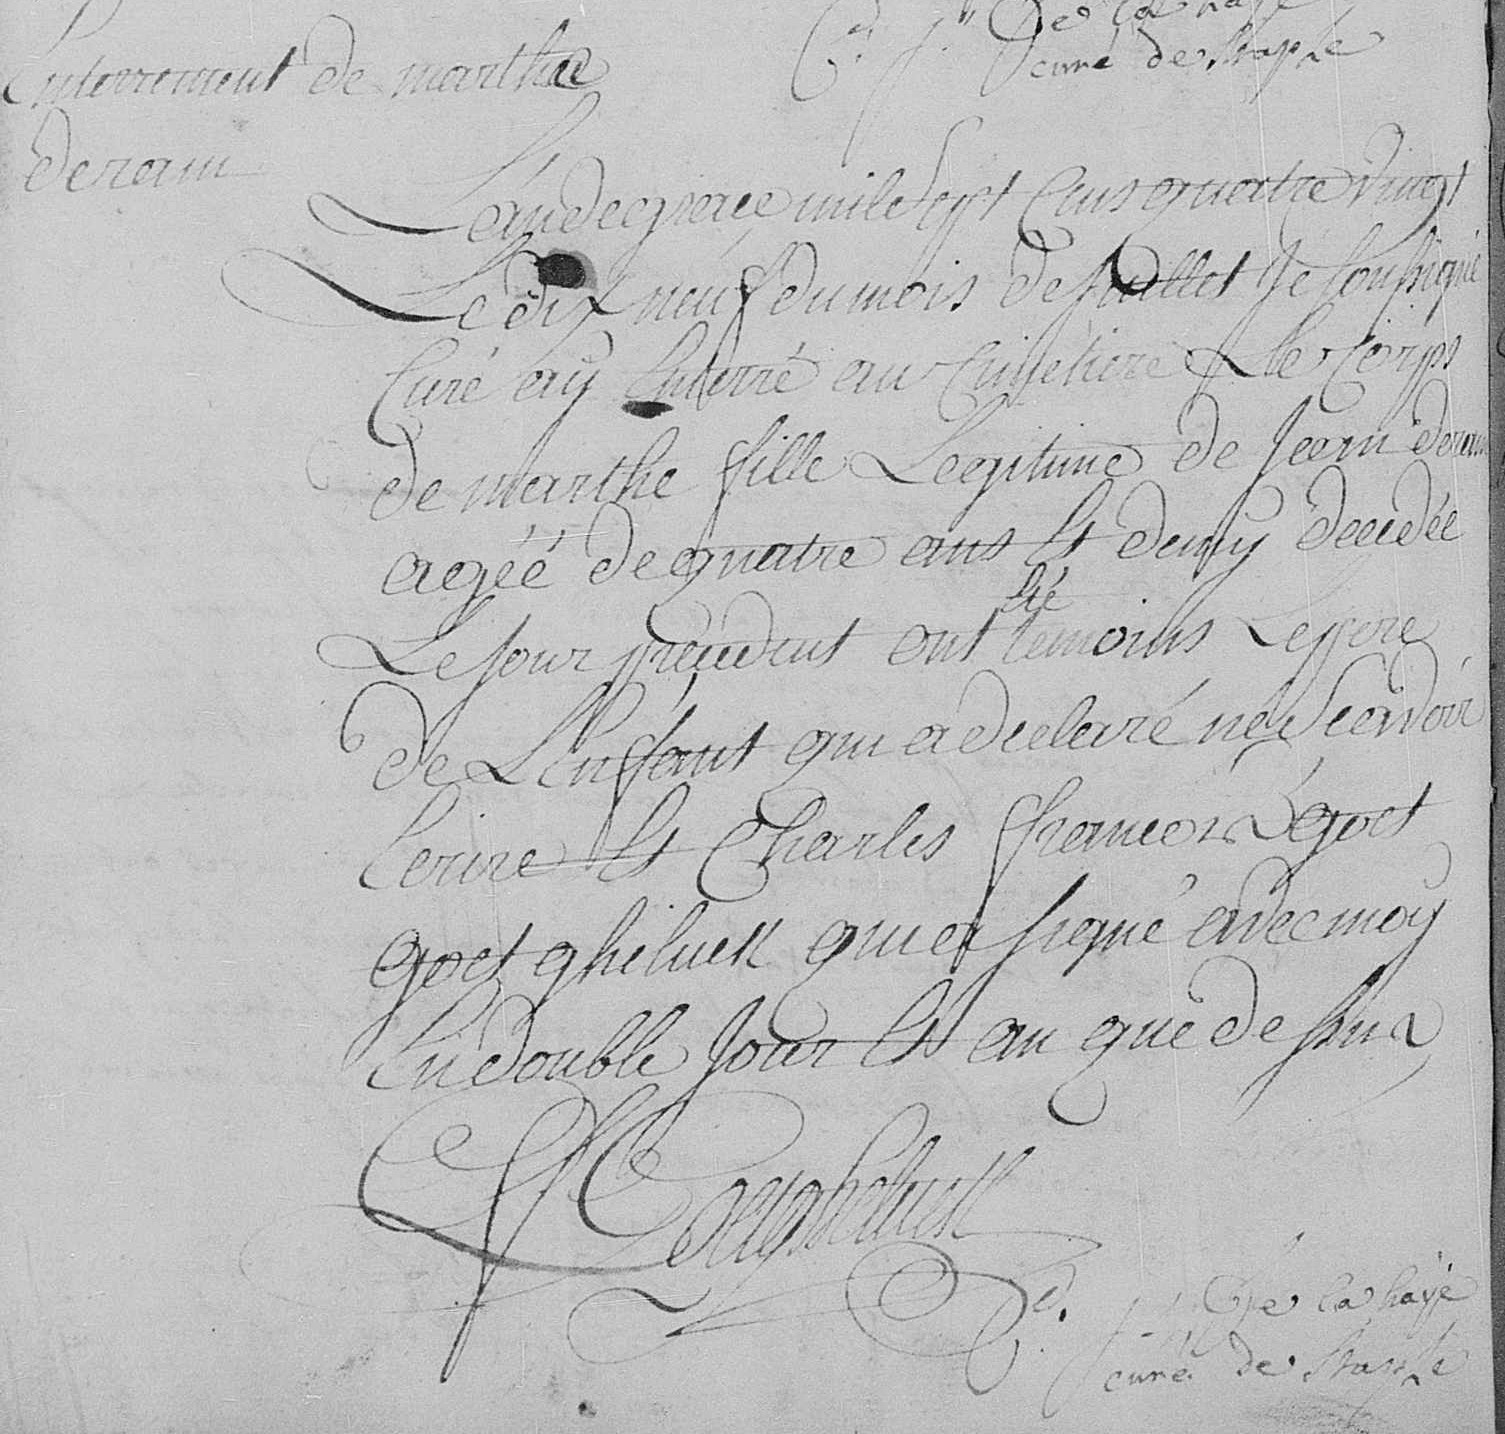 De la haye
curé de Staple
Enterrement de marthe
deram
L'an de grace mile sept cens quatre vingt
Le dix neuf du mois de Juillet Je soussigné
Curé ay Enterré au Cimetiere Le Corps
de marthe fille Legitime de Jean deram
ageé de quatre ans Et demy decedée
Le Jour precedent ont été temoins Le pere
de L'Enfant qui a declaré ne Scavoir
Ecrire Et Charles francois
goetgheluck qui a signé avec moy
En double Jour Et an que dessus
goetgheluck
De la haye
curé de Staple